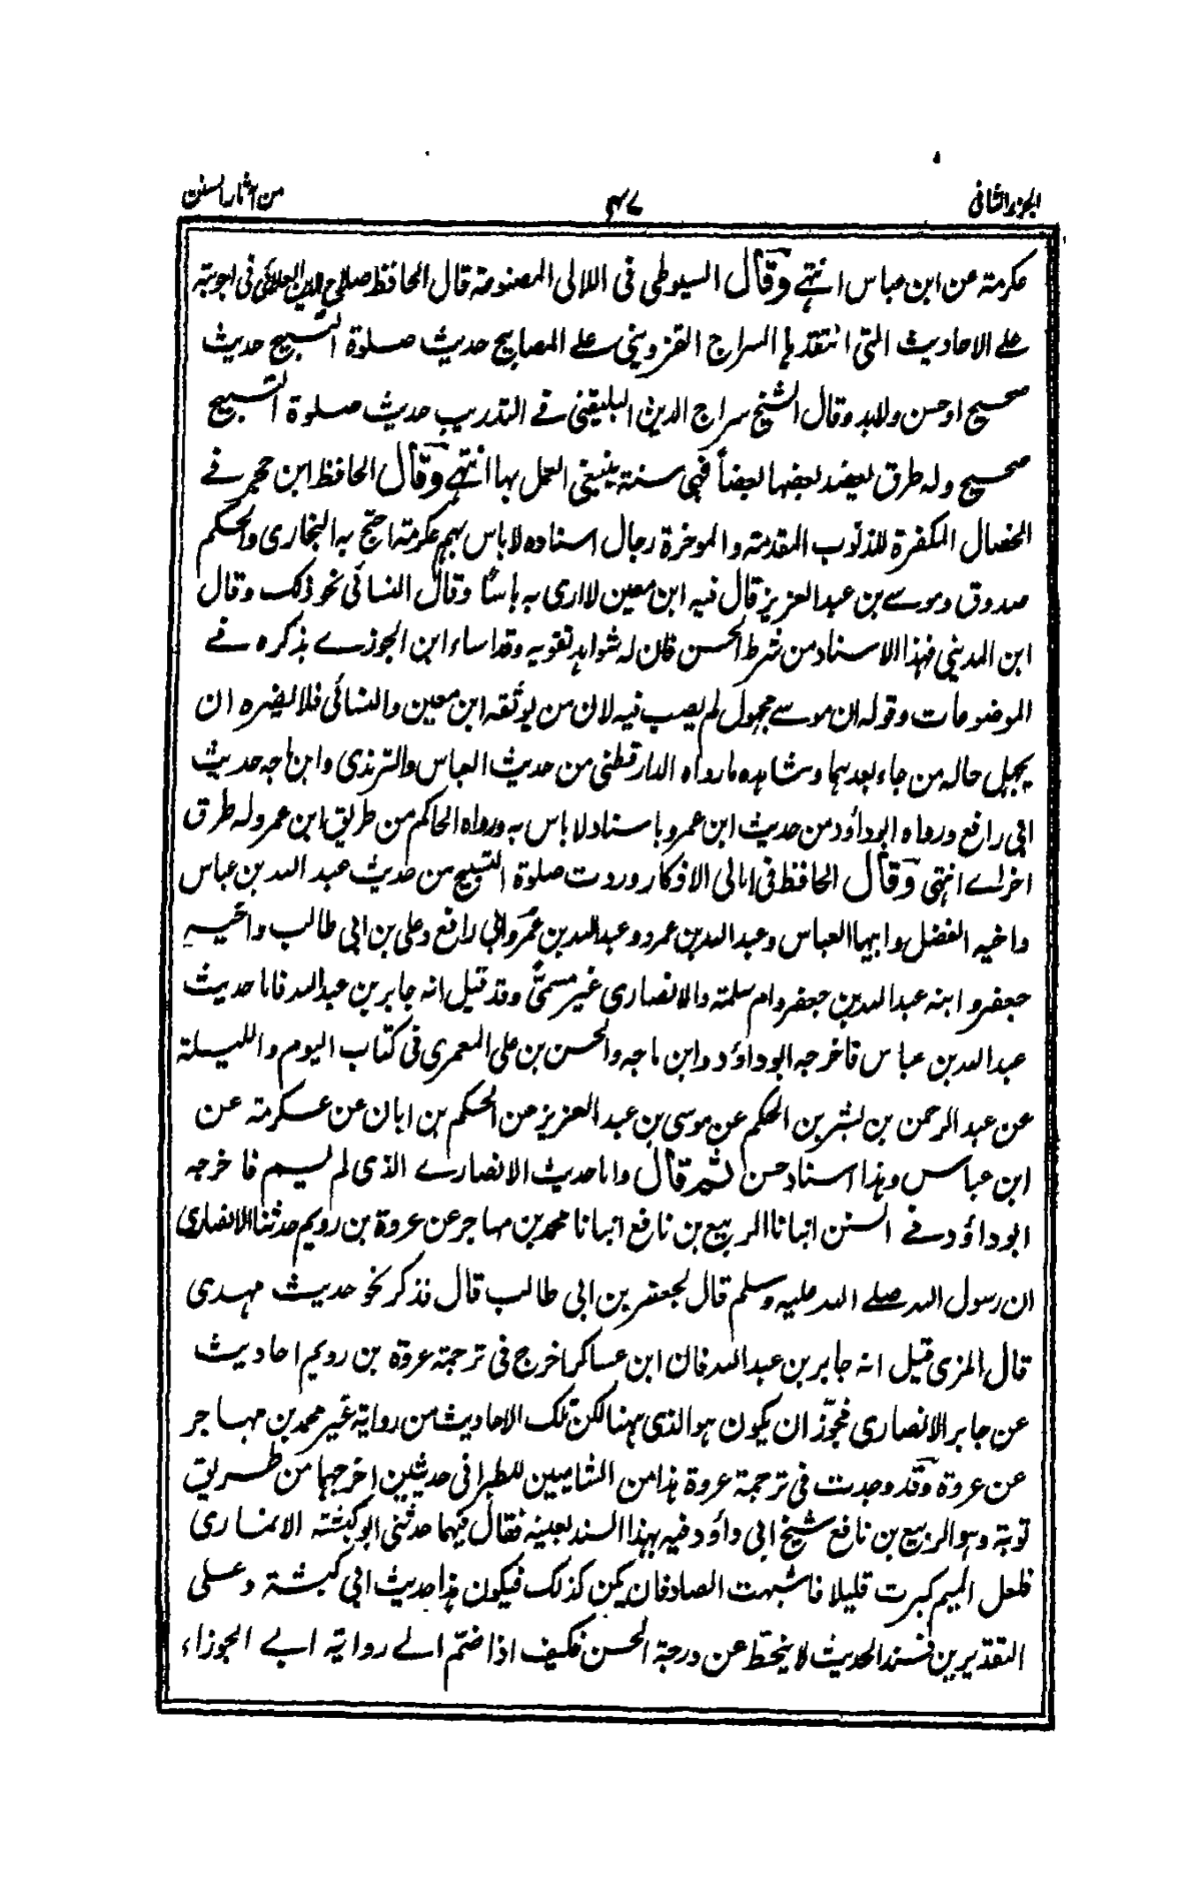 الجزء الثانی ۴۷ من آثار السنن
عکرمة عن ابن عباس انتهے وقال السیوطی فی اللالی المصنوعة قال الحافظ صلاح الدین العلائی فی اجوبته
علے الاحادیث التی انتقدها السراج القزوینی علے المصابیح حدیث صلوة التسبیح حدیث
صحیح او حسن ولابد وقال الشیخ سراج الدین البلیقنی فے التدریب حدیث صلوة التسبیح
صحیح وله طرق یعضد بعضها بعضاً فهی سنة ینبغی العمل بها انتهے وقال الحافظ ابن حجر فے
الخصال المکفرة للذنوب المقدمة والموخرة رجال اسناده لاباس بهم عکرمة احتج به البخاری والحکم
صدوق وموسے بن عبد العزیز قال فیه ابن معین لا اری به باسًا وقال النسائی نحو ذلک وقال
ابن المدینی فهذا الاسناد من شرط الحسن فان له شواهد تقویه وقد اساء ابن الجوزے بذکره فے
الموضوعات وقوله ان موسے مجهول لم یصب فیه لان من یوثقه ابن معین والنسائی فلا یضره ان
یجهل حاله من جاء بعدهما وشاهده ما رواه الدارقطنی من حدیث العباس والترمذی وابن ماجه حدیث
ابی رافع ورواه ابوداؤد من حدیث ابن عمرو باسناد لاباس به ورواه الحاکم من طریق ابن عمر وله طرق
اخرے انتهی وقال الحافظ فی امالی الاذکار وردت صلوة التسبیح من حدیث عبد الله بن عباس
واخیه الفضل وابیهما العباس وعبد الله بن عمرو وعبد الله بن عمر وابی رافع وعلی بن ابی طالب واخیه
جعفر وابنه عبد الله بن جعفر وام سلمة والانصاری غیر مسمیٰ وقد قیل انه جابر بن عبد الله فاما حدیث
عبد الله بن عباس فاخرجه ابوداؤد وابن ماجه والحسن بن علی المعمری فی کتاب الیوم واللیلة
عن عبد الرحمن بن بشر بن الحکم عن موسی بن عبد العزیز عن الحکم بن ابان عن عکرمة عن
ابن عباس وهذا اسناد حسن ثم قال واما حدیث الانصارے الذی لم یسم فاخرجه
ابوداؤد فے السنن انبانا الربیع بن نافع انبانا محمد بن مهاجر عن عروة بن رویم حدثنا الانصاری
ان رسول الله صلے الله علیه وسلم قال لجعفر بن ابی طالب قال فذکر نحو حدیث مهدی
قال المزی قیل انه جابر بن عبد الله فان ابن عساکر اخرج فی ترجمة عروة بن رویم احادیث
عن جابر الانصاری فجوّز ان یکون هو الذی ههنا لکن تلک الاحادیث من روایة غیر محمد بن مهاجر
عن عروة وقد وجدت فی ترجمة عروة هذا من الشامیین للطبرانی حدیثین اخرجهما من طریق
توبة وهو الربیع بن نافع شیخ ابی داؤد فیه بهذا السند بعینه فقال فیهما حدثنی ابو کبشة الانماری
فلعل المیم کبرت قلیلا فاشبهت الصاد فان یکن کذلک فیکون هذا حدیث ابی کبشة وعلی
التقدیرین فسند الحدیث لا ینحط عن درجة الحسن فکیف اذا ضمّ الے روایة ابے الجوزاء